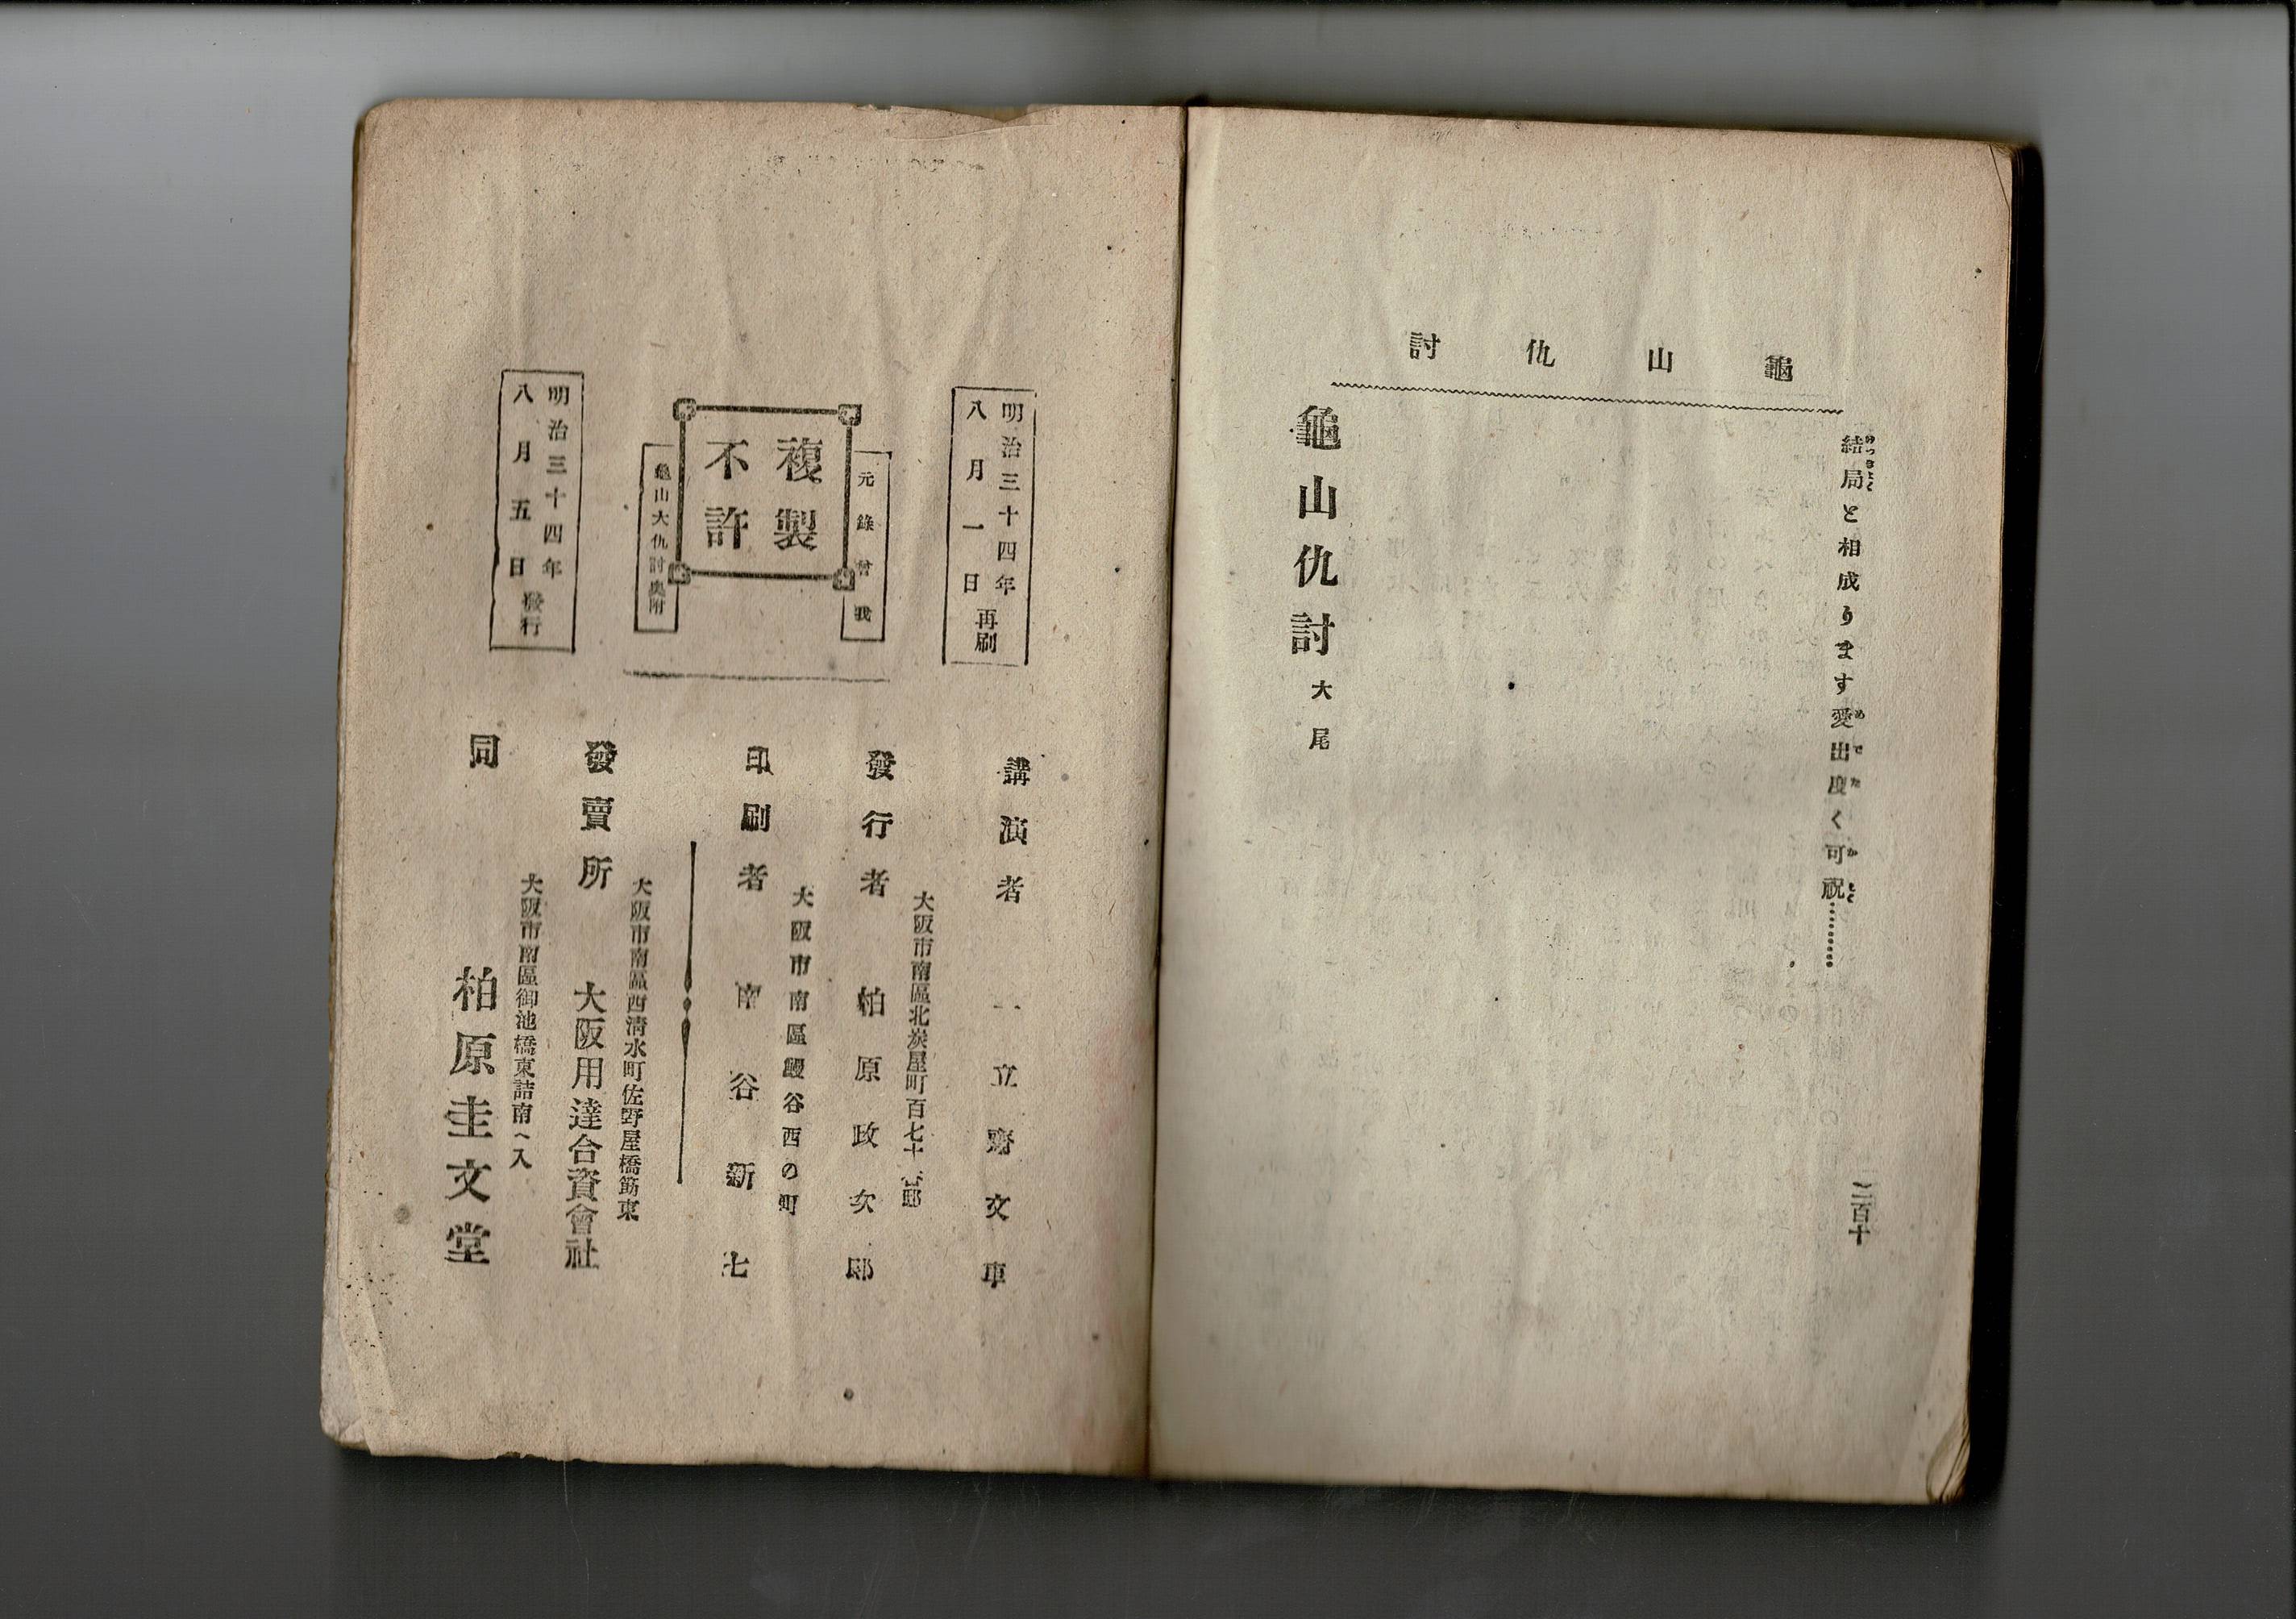 龜山仇討
結局と相成ります愛出度く可祝………
二百十
龜山仇討
大尾
明治三十四年
八月一日
再刷
元錄曾我
複製
不許
龜山大仇討奧附
明治三十四年
八月五日
發行
講演者 一立齋文車
大阪市南區北炭屋町百七十六邸
發行者 柏原政次郎
大阪市南區鰻谷西の町
印刷者 南谷新七
大阪市南區西清水町佐野屋橋筋東
發賣所 大阪用達合資會社
大阪市南區御池橋東詰南へ入
同 柏原圭文堂